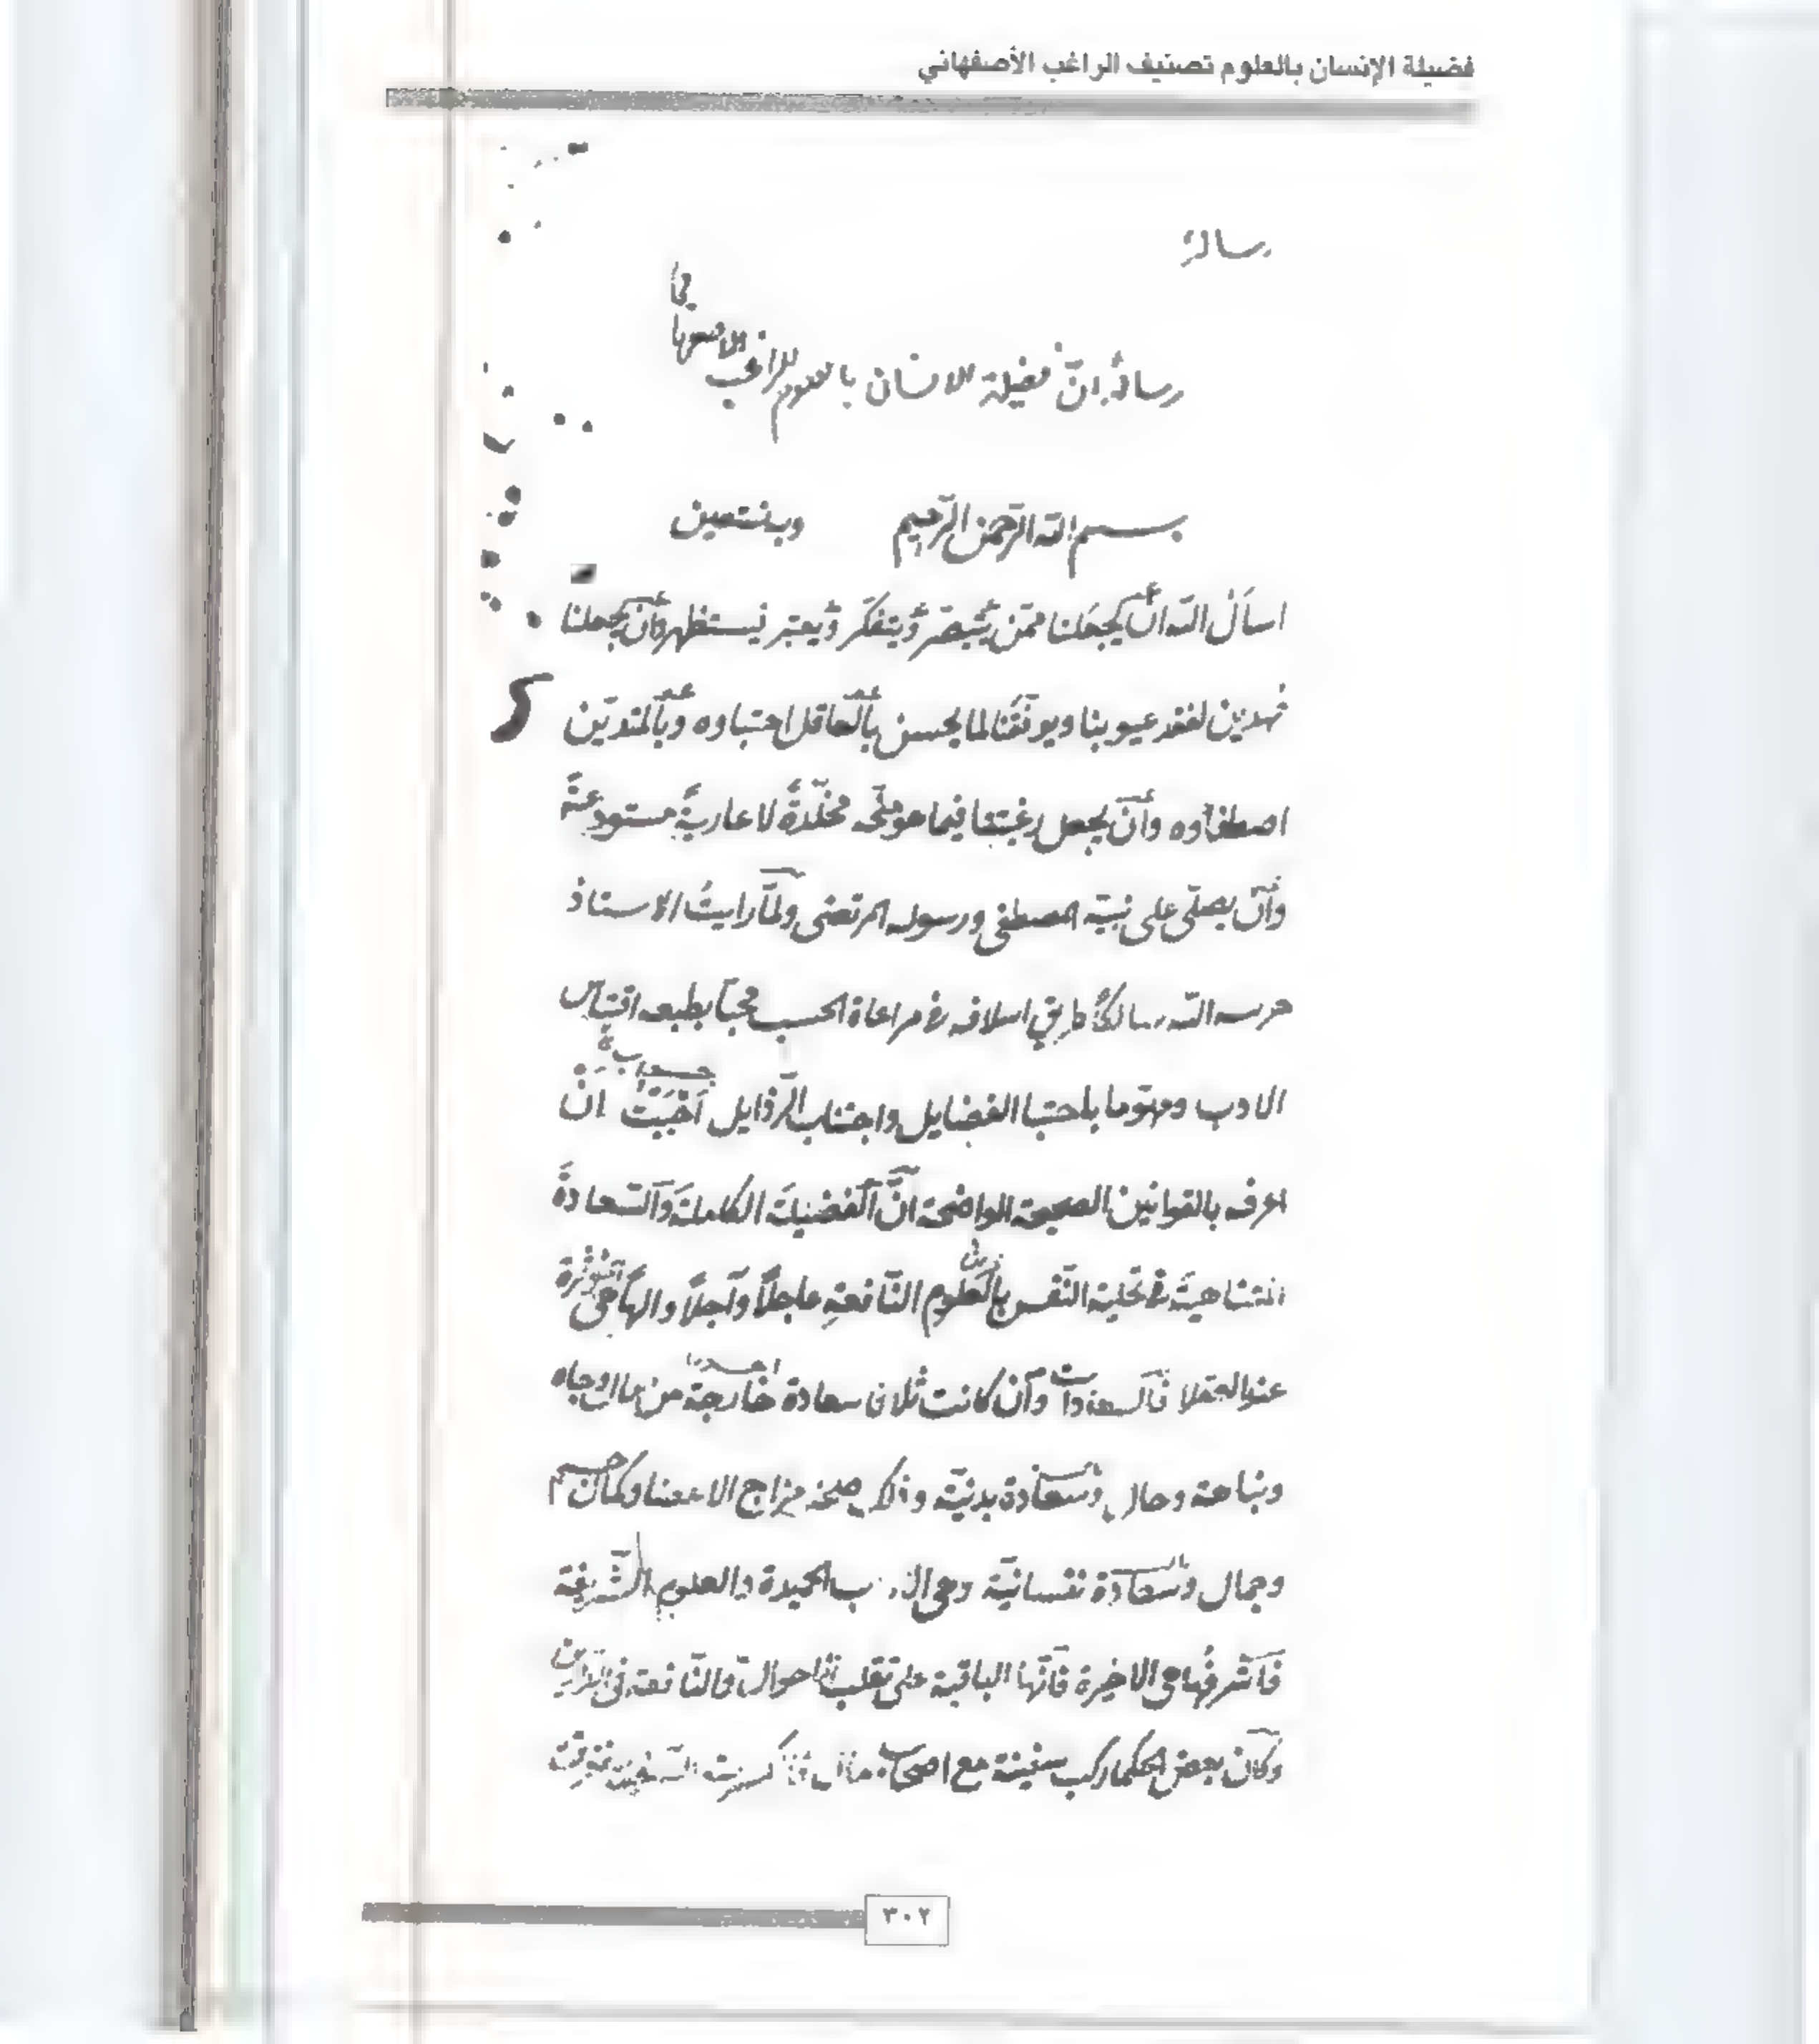 فضيلة الإنسان بالعلوم تصنيف الراغب الأصفهاني
رسالة
رسالة ان فضيلة الانسان بالعلوم للراغب الاصفهاني
بسم الله الرحمن الرحيم وبه نستعين
اسأل الله ان يجعلنا ممن يتبصر ويتفكر ويعتبر فيستظهر وأن يجعلنا
لفقد عيوبنا ويوفقنا لما يحسن بالعاقل احتباوه وبالمتدين
اصطفاوه وأن يجعل رغبتنا فيما هو مخلدة لا عارية مستودعة
وأن يصلى على نبيه المصطفى ورسوله المرتضى ولما رايت الاستاذ
حرسه الله سالكا طريق اسلافه في مراعاة الحسب محبا بطبعه اقتباس
الادب ومهتوما باحتبا الفضايل واجتناب الرذايل احببت ان
اعرفه بالقوانين الصحيحة الواضحة ان الفضيلة الكاملة والسعادة
المتناهية في تحلية النفس بالعلوم النافعة عاجلا وآجلا وانها هى
عند العقلا فالسعادات وان كانت ثلاثا سعادة خارجة من مال وجاه
ونباهة وحال وسعادة بدنية وذلك صحة مزاج الاعضا وكمال جسم
وجمال وسعادة نفسانية وهى الحميدة والعلوم الشريفة
فاشرفها هى الاخيرة فانها الباقية على تقلب الاحوال والنافعة في الدارين
وكان بعض الحكما ركب سفينة مع اصحاب مال السفينة
٣٠٢